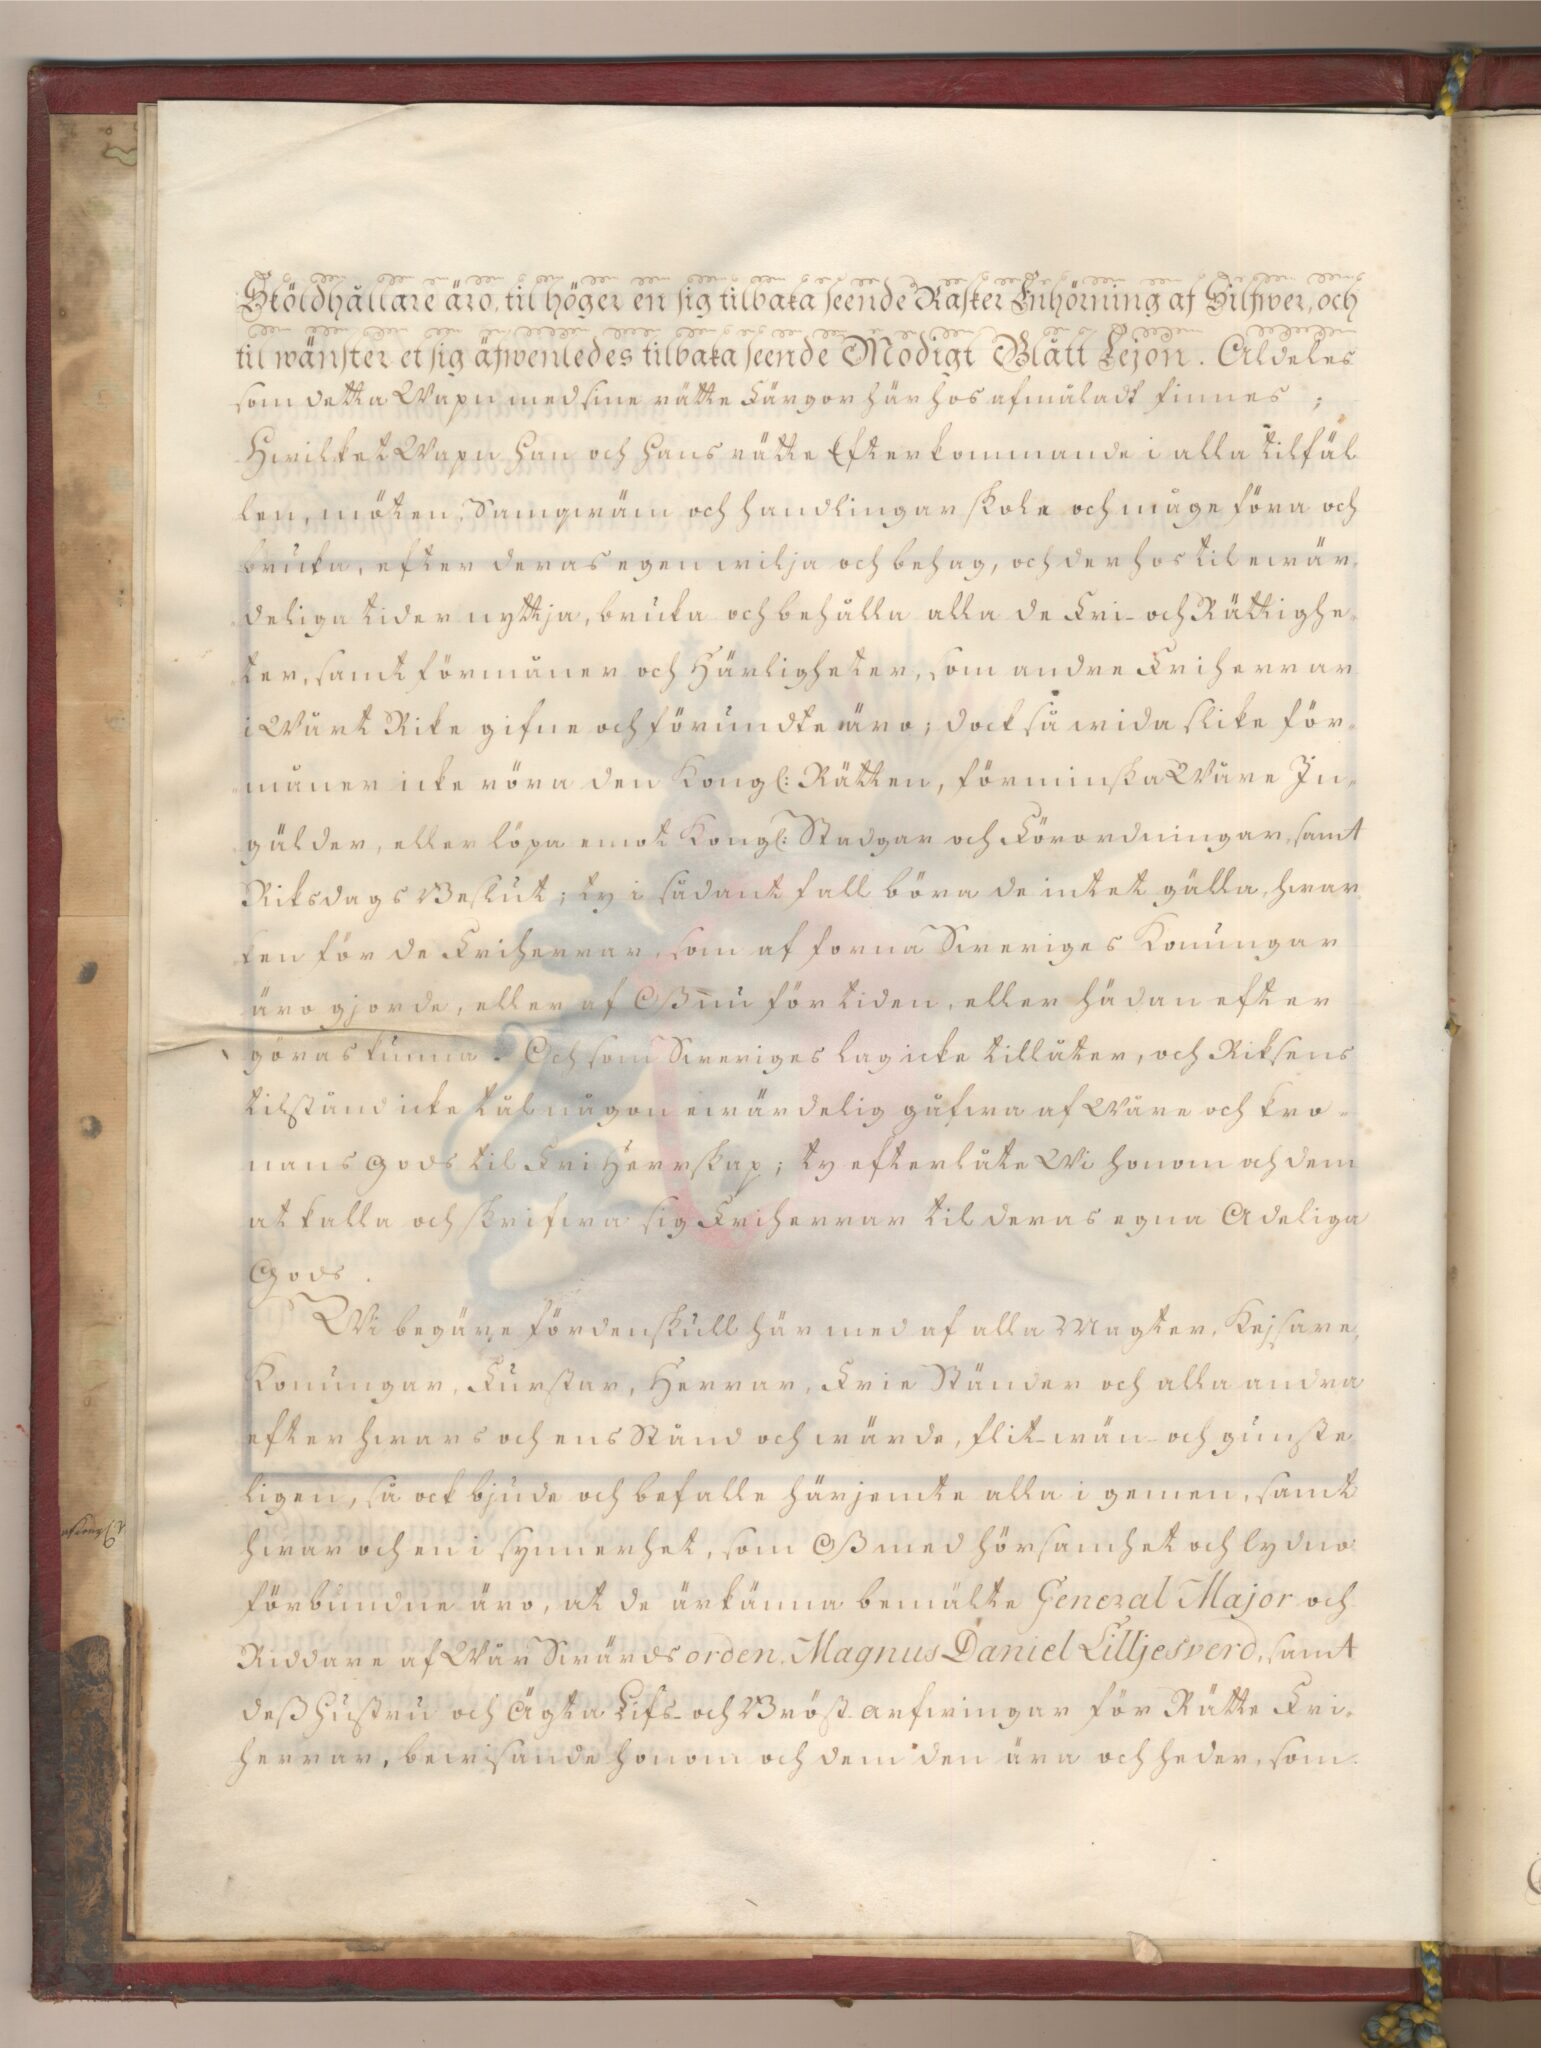 Sköldhållare äro, til höger en sig tilbaka seende Rasker Enhörning af Silfwer, och
til wänster et sig äfwenledes tilbaka seende Modigt Blått Lejon. Aldeles
som detta Wapn med sine rätte Färgor här hos afmåladt finnes ;
Hwilket Wapn Han och Hans rätte Efterkommande i alla tilfäl
len, möten, Samqwäm och handlingar skole och måge föra och
bruka, efter deras egen wilja och behag, och derhos til ewär-
deliga tider nyttja, bruka och behålla alla de Fri- och Rättighe-
ter, samt förmåner och Härligheter, som andre Friherrar
i Wårt Rike gifne och förundte äro; dock så wida slike för-
måner icke röra den Kongl: Rätten, förminska Wåre In-
gälder, eller löpa emot Kongl: Stadgar och Förordningar, samt
Riksdags Beslut; ty i sådant fall böra de intet gälla, hwar
ken för de Friherrar, som af forna Sweriges Konungar
äro gjorde, eller af Oß nu för tiden, eller hädan efter
göras kunna. Och som Sweriges lag icke tillåter, och Riksens
tilstånd icke tål någon ewärdelig gåfwa af Wåre och kro-
nans Gods til Fri Herrskap; ty efterlåte Wi honom och dem
at kalla och skrifwa sig Friherrar til deras egna Adeliga
Gods.
Wi begäre fördenskull härmed af alla Magter, Kejsare,
Konungar, Furstar, Herrar, Frie Ständer och alla andra
efter hwars och ens Stånd och wärde, flit- wän- och gunste
ligen, så ock bjude och befalle härjemte alla i gemen, samt
hwar och en i synnerhet, som Oß med hörsamhet och lydno
förbundne äro, at de ärkänna bemälte General Major och
Riddare af Wår Swärds orden, Magnus Daniel Lilljesverd, samt
deß Hustru och Ägta Lifs- och Bröst-arfwingar för Rätte Fri-
herrar, bewisande honom och dem den ära och heder, som